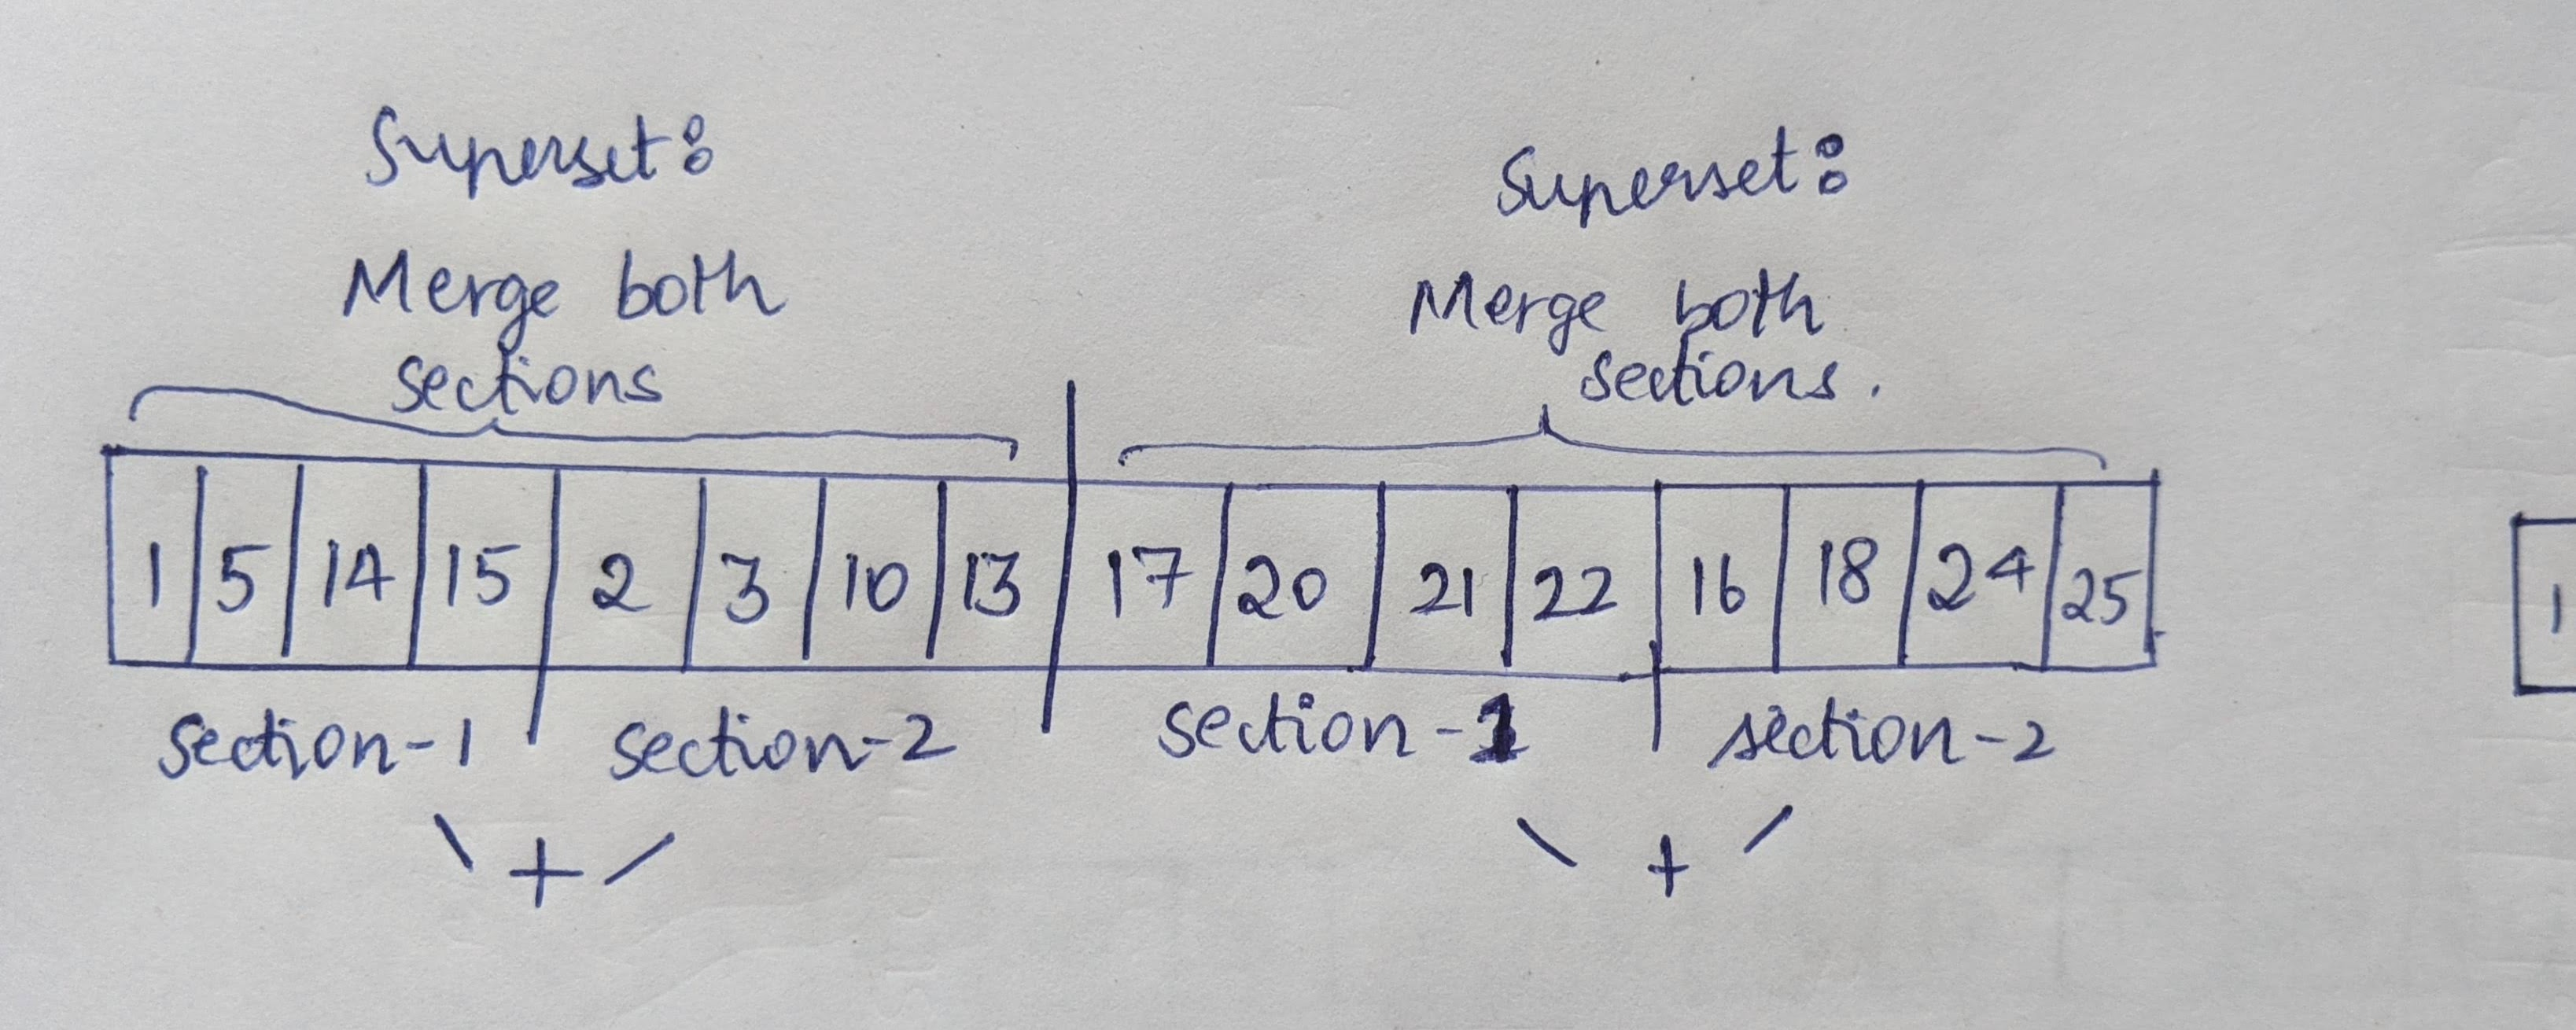 Superset:
Merge both
sections
Superset:
Merge both
sections.
1 5 14 15 2 3 10 13 17 20 21 22 16 18 24 25
section-1 section-2 section-1 section-2
+ +
1